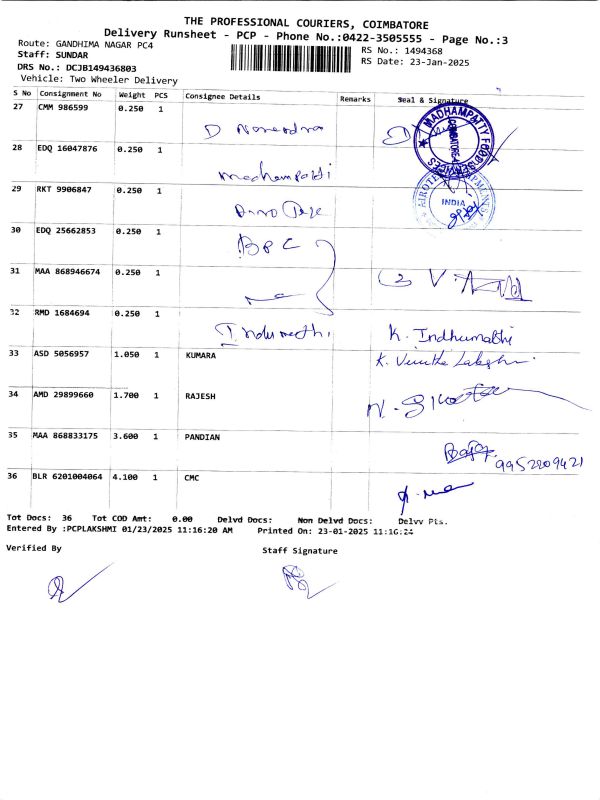 THE PROFESSIONAL COURIERS, COIMBATORE
Delivery Runsheet - PCP - Phone No.:0422-3505555 - Page No.:3
Route: GANDHIMA NAGAR PC4
RS No.: 1494368
Staff: SUNDAR
RS Date: 23-Jan-2025
DRS No.: DCJB149436803
Vehicle: Two Wheeler Delivery
S No Consignment No Weight PCS Consignee Details Remarks Seal & Signature
27 CMM 986599 0.250 1
D Narendra
MADHAMPATTY FOOD SERVICES
COIMBATORE
28 EDQ 16047876 0.250 1
Madhampatti
29 RKT 9906847 0.250 1
INDIA
30 EDQ 25662853 0.250 1
BPC
31 MAA 868946674 0.250 1
32 RMD 1684694 0.250 1
Indumathi K. Indhumathi
33 ASD 5056957 1.050 1 KUMARA
34 AMD 29899660 1.700 1 RAJESH
35 MAA 868833175 3.600 1 PANDIAN
9952209421
36 BLR 6201004064 4.100 1 CMC
Tot Docs: 36 Tot COD Amt: 0.00 Delvd Docs: Non Delvd Docs: Delvv Pts.
Entered By :PCPLAKSHMI 01/23/2025 11:16:20 AM Printed On: 23-01-2025 11:16:24
Verified By Staff Signature